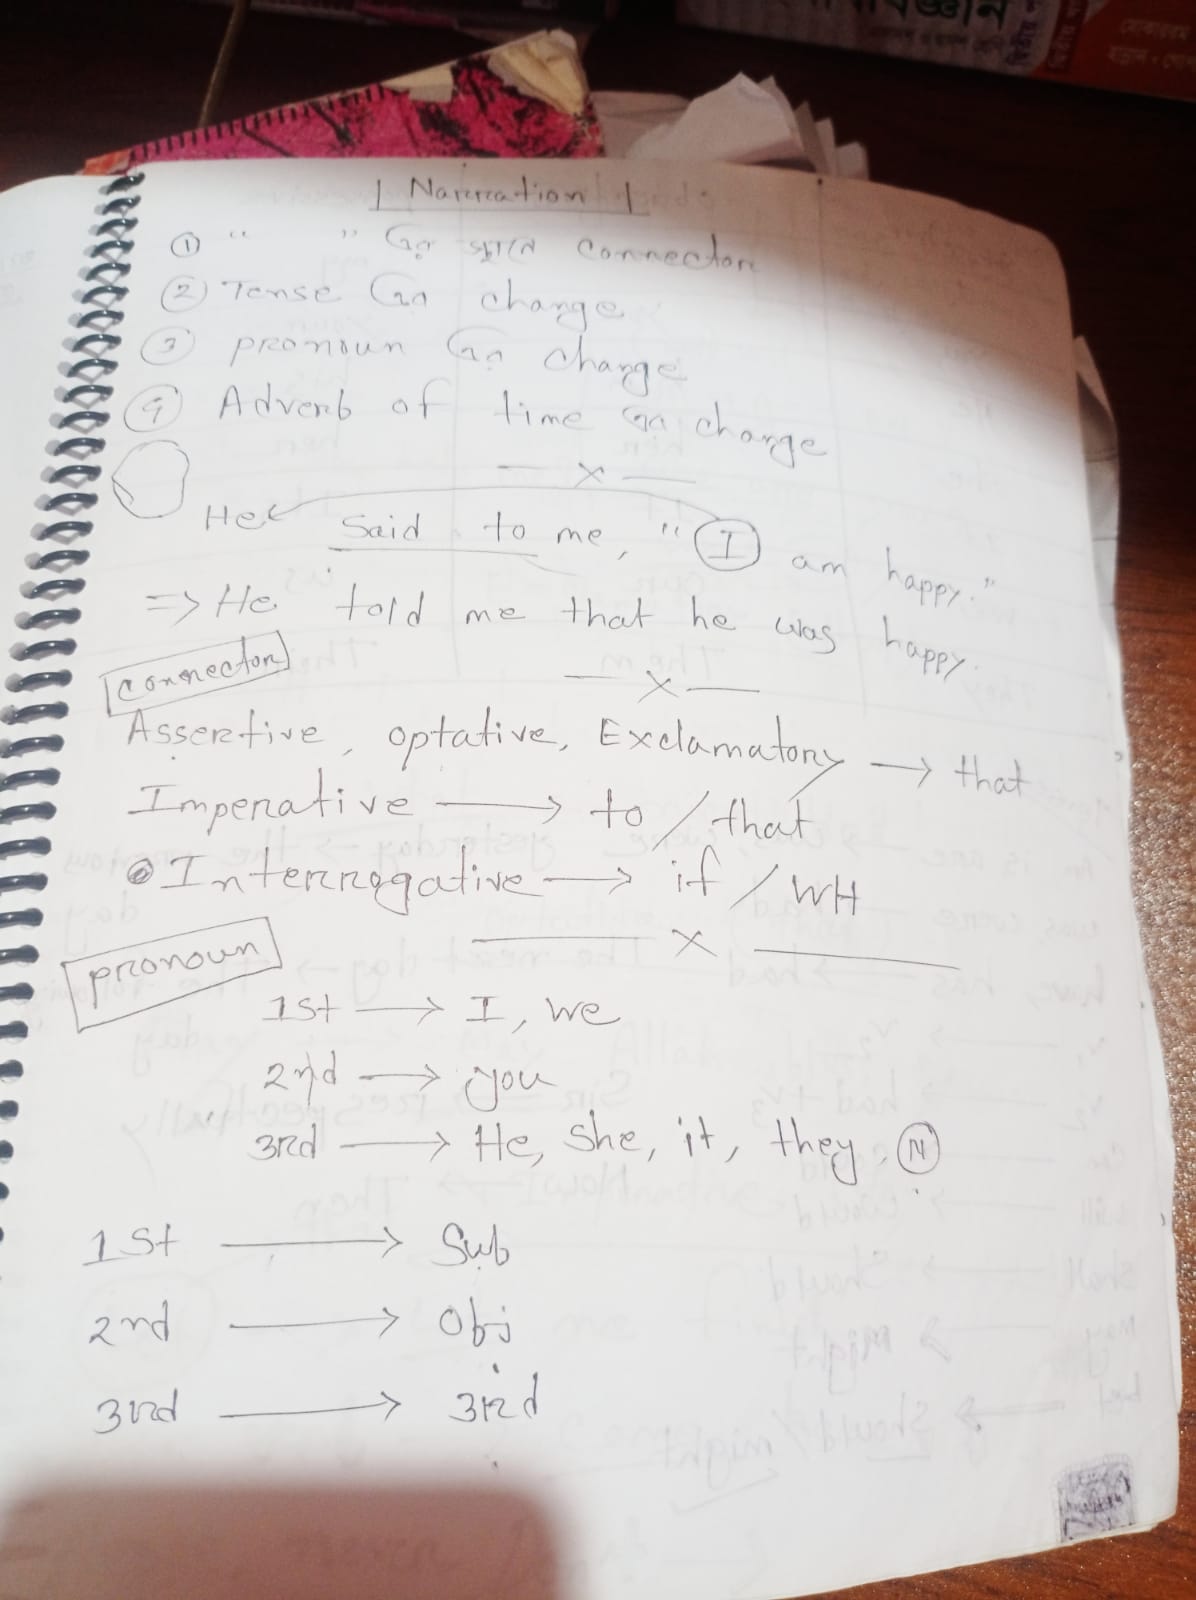 Narration
① " " এর স্থানে connector
② Tense এর change
③ pronoun এর change
④ Adverb of time এর change
— x —
He said to me, "I am happy."
=> He told me that he was happy.
— x —
Connector
Assertive, optative, Exclamatory → that
Imperative → to / that
Interrogative → if / WH
— x —
pronoun
1st → I, we
2nd → you
3rd → He, she, it, they, N
1st → Sub
2nd → Obj
3rd → 3rd